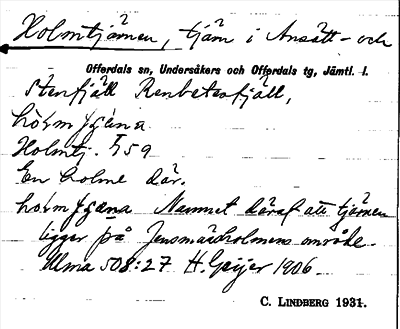 Holmtjärnen, tjärn i Ansätt- och
Offerdals sn, Undersåkers och Offerdals tg, Jämtl. l.
Stenfjäll Renbetesfjäll,
Holmtj. 559
En holme där.
Namnet däraf att tjärnen
ligger på Jensmässholmens område.
Ulma 508:27 H. Geijer 1906
C. LINDBERG 1931.